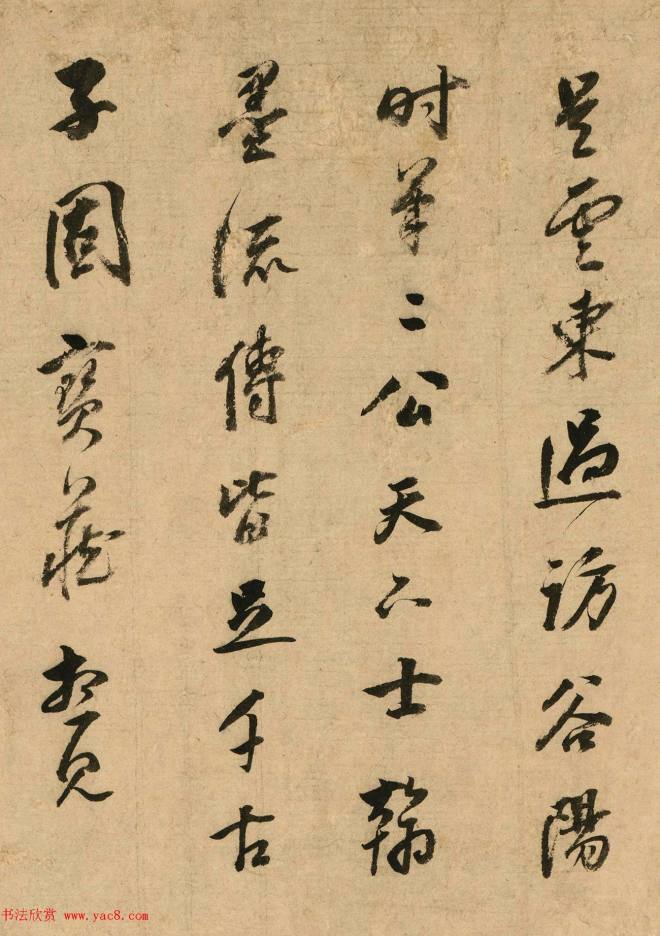 是雲東過訪谷陽
时筆二公天下士翰
墨流傳皆足千古
子固寶藏想見
书法欣赏 www.yac8.com